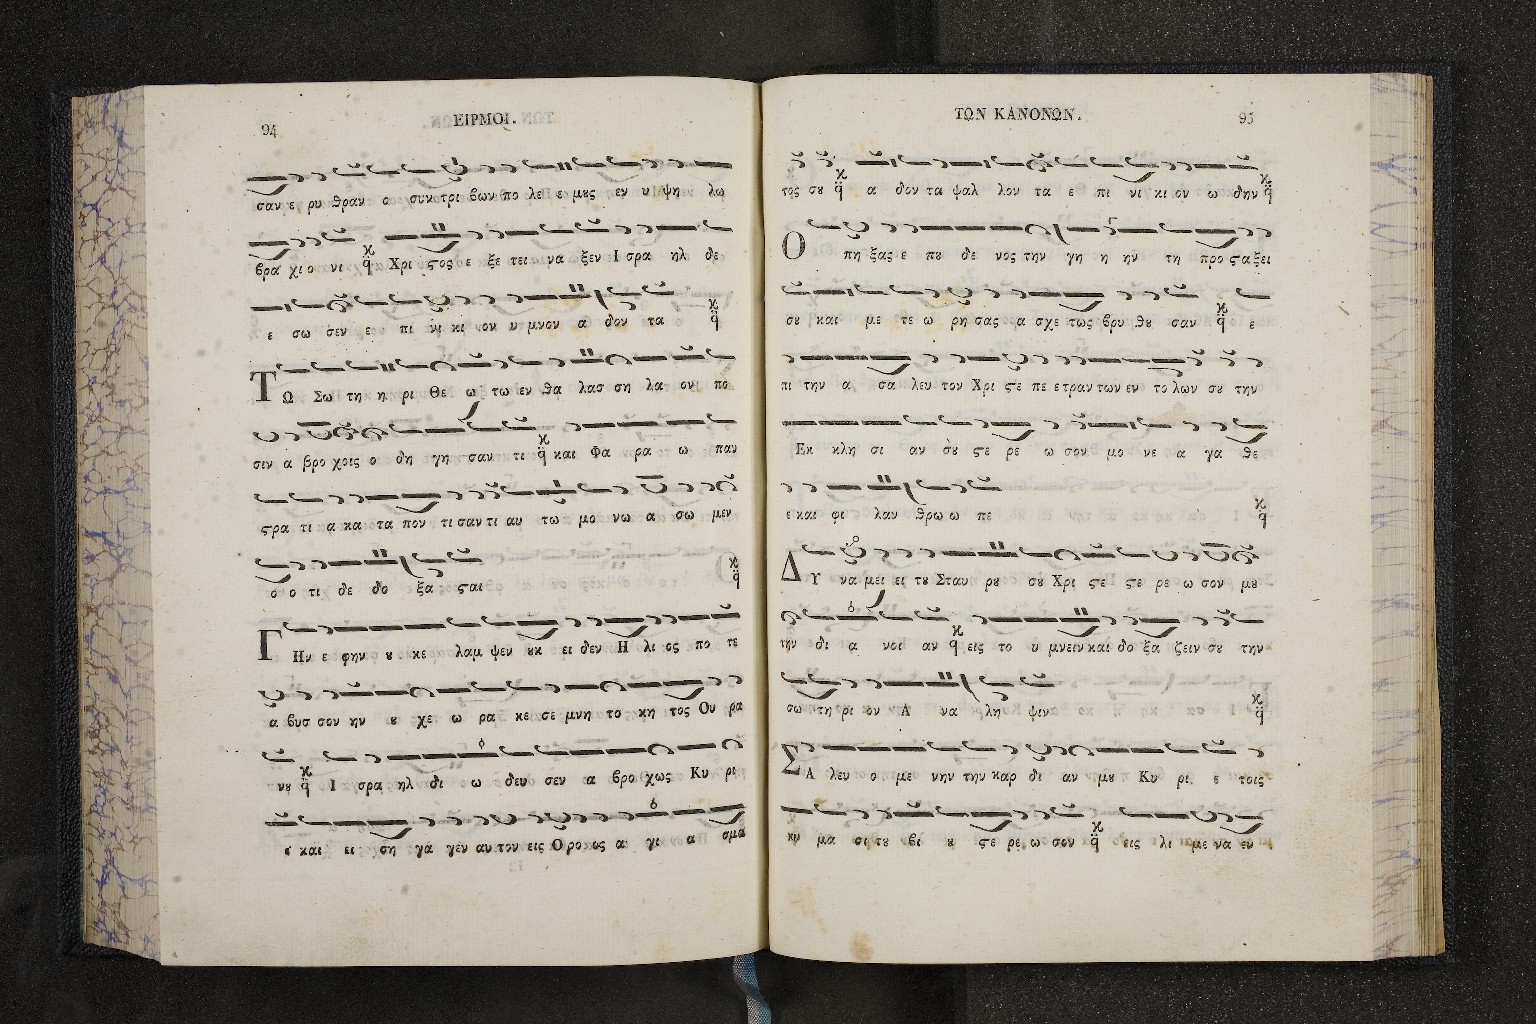 94
ΕΙΡΜΟΙ.
σαν ε ρυ θραν ο συν τρι βων πο λε ε μȣς εν υ ψη λω
βρα χι ο νι Χρι ϛος ε ξε τει να ξεν Ι σρα ηλ δε
ε σω σεν ε πι νι κι ον υ μνον α δον τα
ΤΩ Σω τη η ρι Θε ω τω εν θα λασ ση λα ον πο
σιν α βρο χοις ο δη γη σαν τι και Φα ρα ω παν
ϛρα τι α κα τα πον τι σαν τι αυ τω μο νω α σω μεν
ο ο τι δε δο ξα ϛαι
ΓΗν ε φην ȣ κε λαμ ψεν ȣκ ει δεν Η λι ος πο τε
α βυσ σον ην ȣ χε ω ρα κε σε μνη το κη τος Ου ρα
νȣ Ι σρα ηλ δι ω δευ σεν α βρο χως Κυ ρι
ε και ει ση γα γεν αυ τον εις Ο ρο ος α γι α σμα
ΤΩΝ ΚΑΝΟΝΩΝ.
95
τος σȣ α δον τα ψαλ λον τα ε πι νι κι ον ω δην
Ο πη ξας ε πȣ δε νος την γη η ην τη προ ϛα ξει
σȣ και με τε ω ρη σας α σχε τως βρυ θȣ σαν ε
πι την α σα λευ τον Χρι ϛε πε ε τραν των εν το λων σȣ την
Εκ κλη σι αν σȣ ϛε ρε ω σον μο νε α γα θε
ε και φι λαν θρω ω πε
ΔΥ να μει ει τȣ Σταυ ρȣ σȣ Χρι ϛε ϛε ρε ω σον μȣ
την δι α νοι αν εις το υ μνειν και δο ξα ζειν σȣ την
σω τη ρι ον Α να λη ψιν
ΣΑ λευ ο με νην την καρ δι αν μȣ Κυ ρι ε τοις
κυ μα σι τȣ βι ȣ ϛε ρε ω σον εις λι με να εν